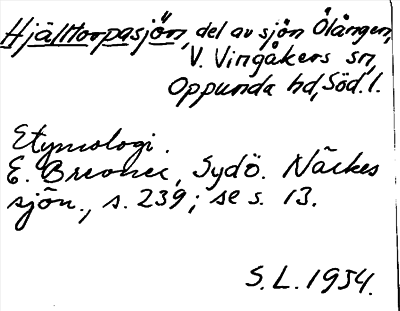 Hjälltorpasjön, del av sjön Ölången,
V. Vingåkers sn,
Oppunda hd, Söd. l.
Etymologi.
E. Brevner, Sydö. Närkes
sjön., s. 239; se s. 13.
S.L. 1934.